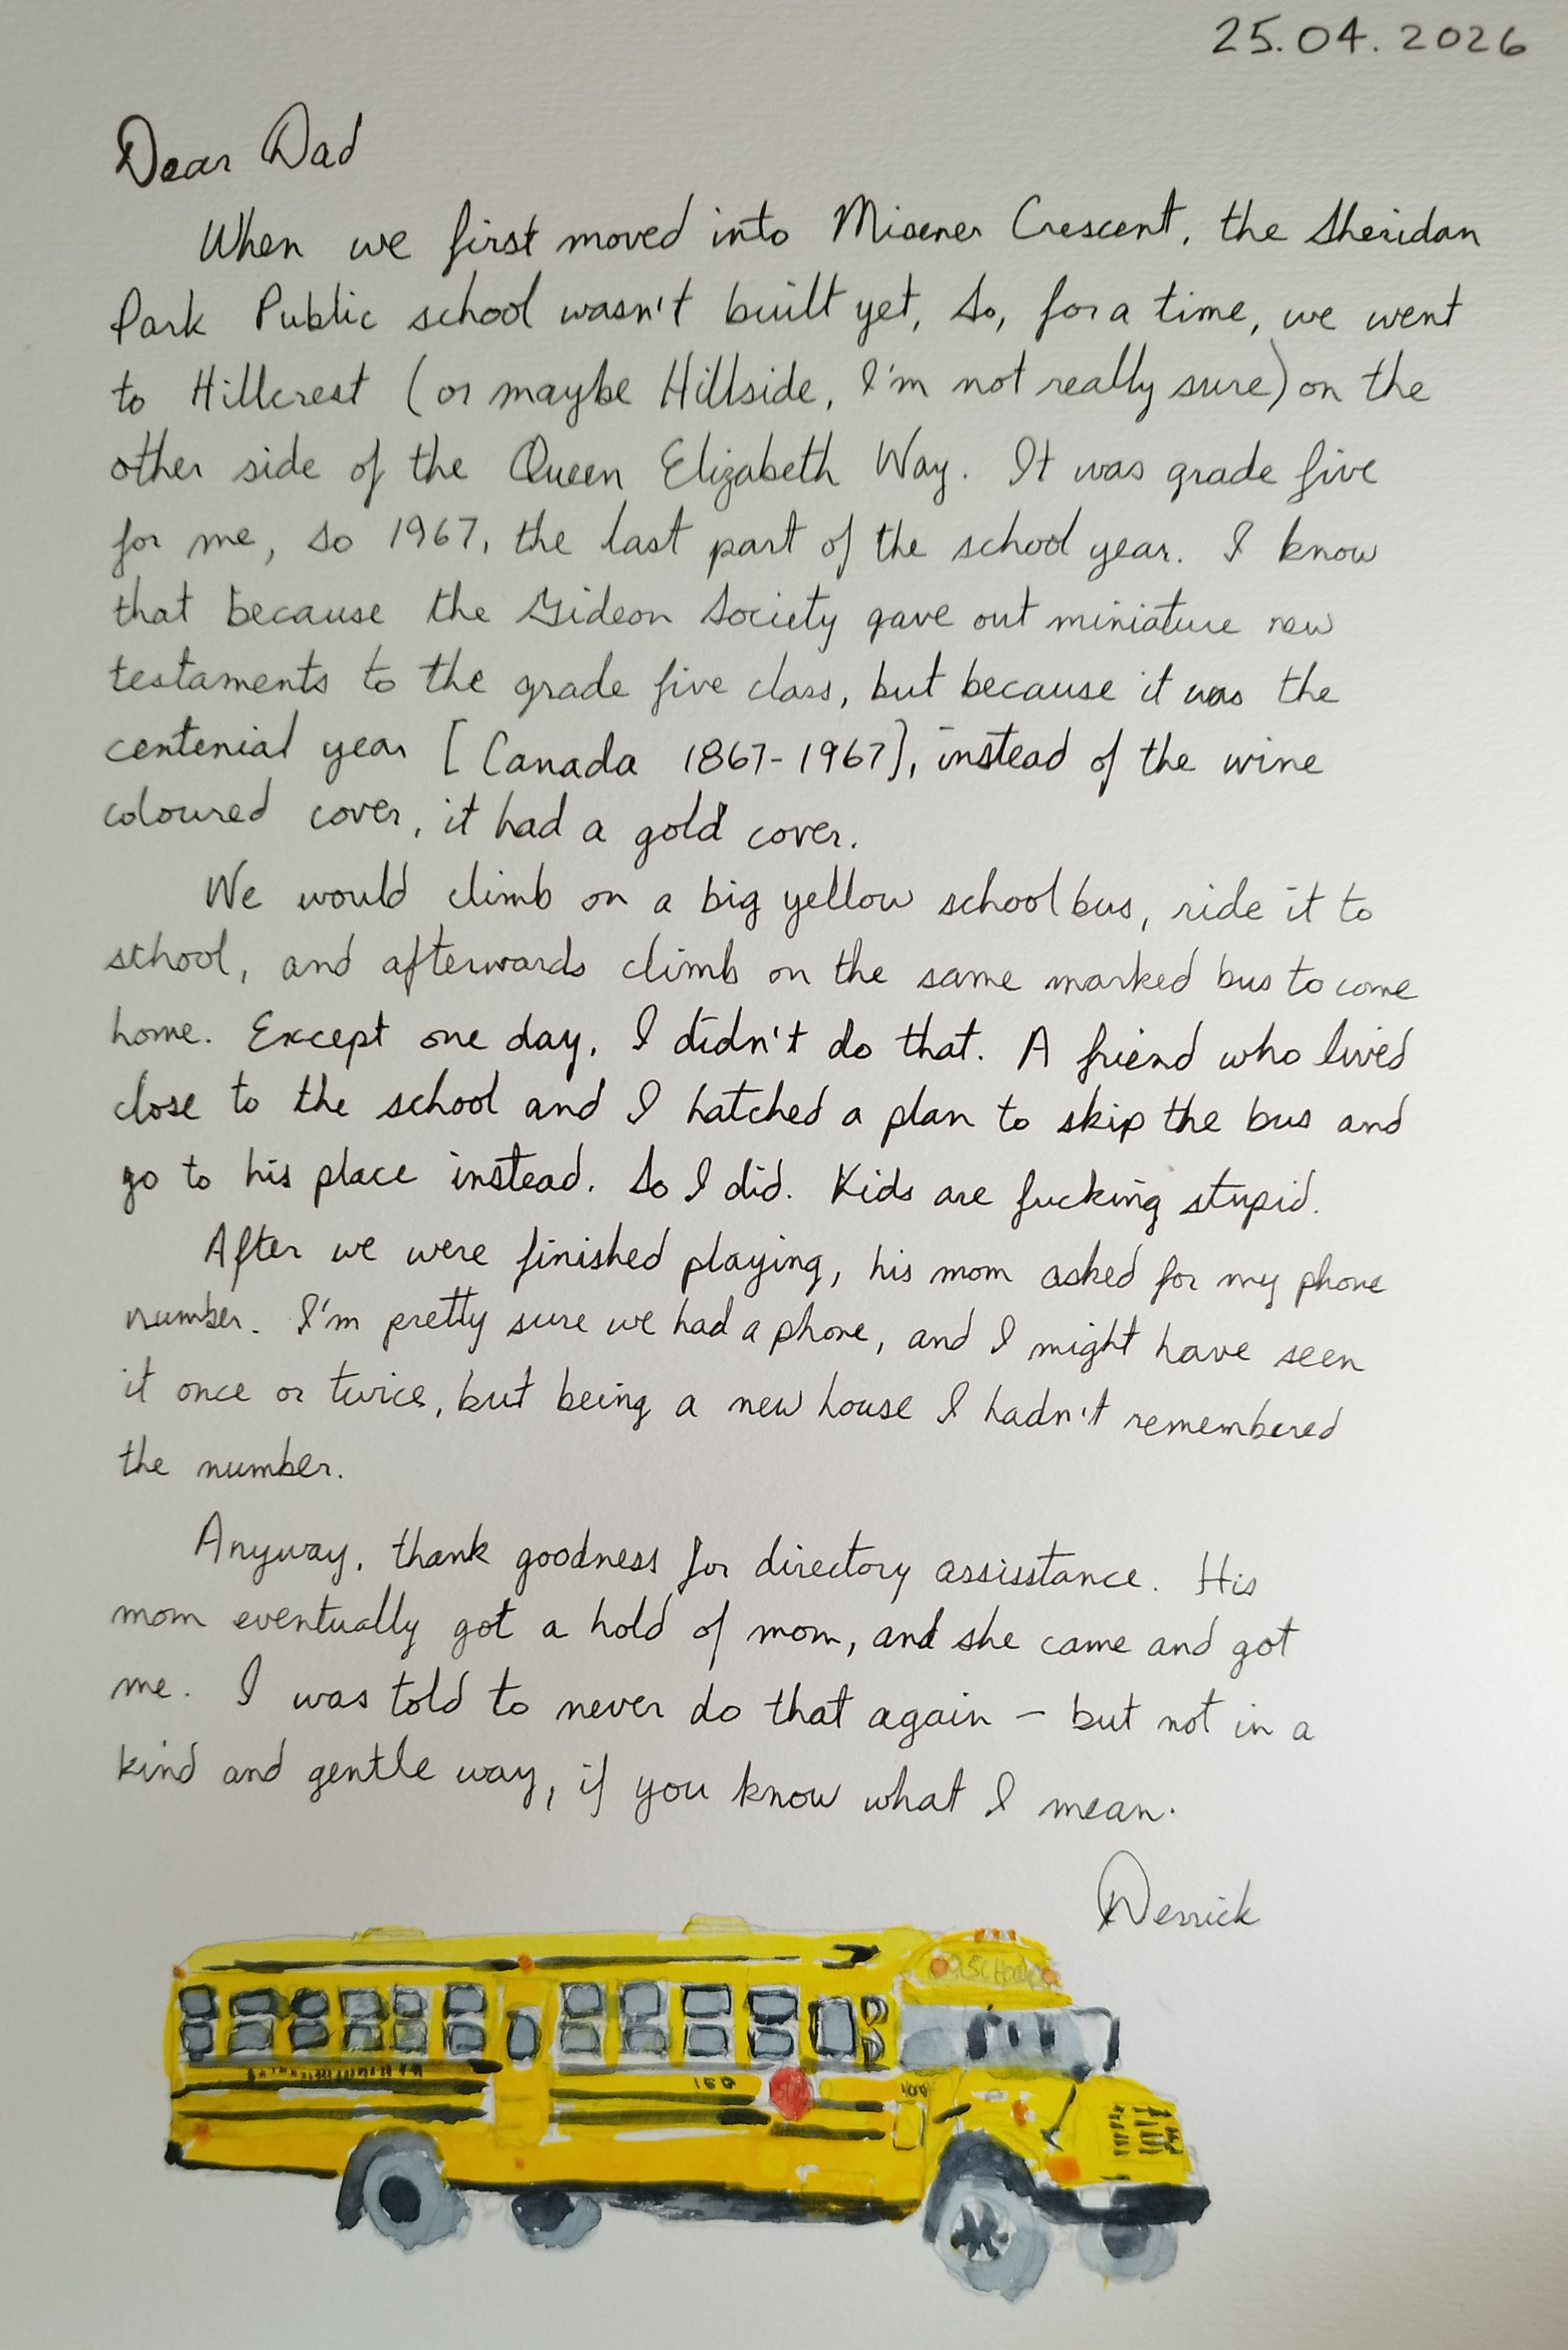 25.04.2026
Dear Dad
When we first moved into Misener Crescent, the Sheridan
Park Public school wasn't built yet, so, for a time, we went
to Hillcrest (or maybe Hillside, I'm not really sure) on the
other side of the Queen Elizabeth Way. It was grade five
for me, so 1967, the last part of the school year. I know
that because the Gideon Society gave out miniature new
testaments to the grade five class, but because it was the
centenial year [Canada 1867-1967], instead of the wine
coloured cover, it had a gold cover.
We would climb on a big yellow school bus, ride it to
school, and afterwards climb on the same marked bus to come
home. Except one day, I didn't do that. A friend who lived
close to the school and I hatched a plan to skip the bus and
go to his place instead. So I did. Kids are fucking stupid.
After we were finished playing, his mom asked for my phone
number. I'm pretty sure we had a phone, and I might have seen
it once or twice, but being a new house I hadn't remembered
the number.
Anyway, thank goodness for directory assisstance. His
mom eventually got a hold of mom, and she came and got
me. I was told to never do that again - but not in a
kind and gentle way, if you know what I mean.
Derrick